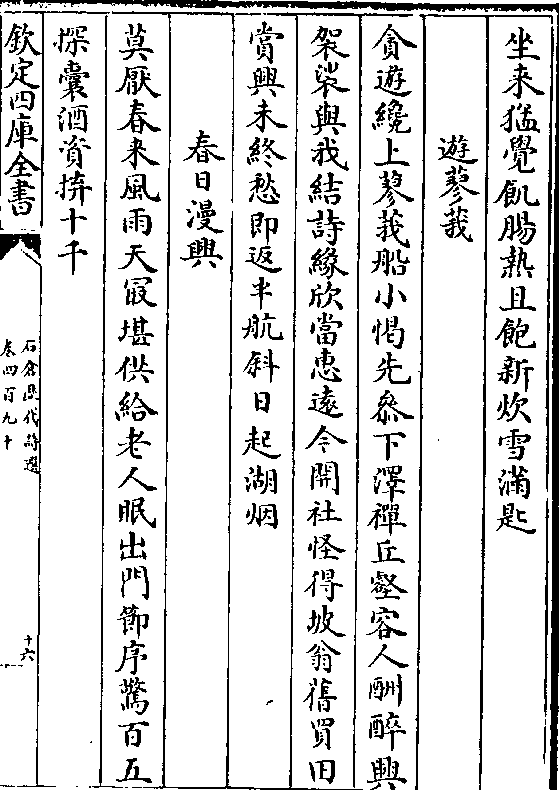 坐来猛覺飢腸熱且飽新炊雪滿匙
遊蓼莪
貪遊纔上蓼莪船小憩先叅下澤禪丘壑容人酬醉興
袈裟與我結詩緣欣當惠遠今開社怪得坡翁舊買田
賞興未終愁即返半航斜日起湖烟
春日漫興
莫厭春来風雨天㝡堪供給老人眠出門節序驚百五
探囊酒資拚十千
欽定四庫全書
石倉歷代詩選
卷四百九十
十六